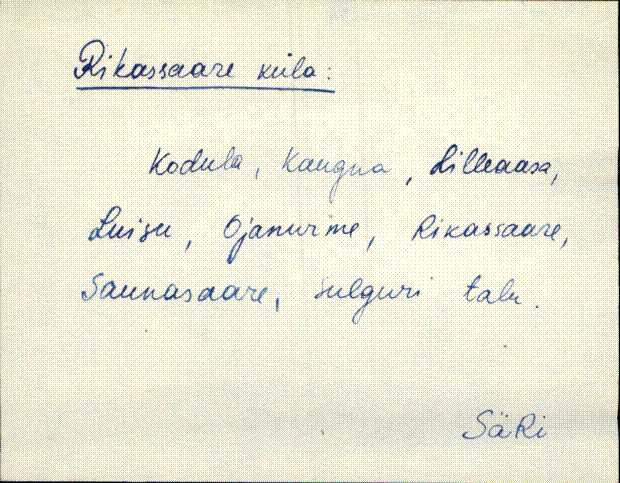 Rikassaare küla:
Kodula, Kangna, Lilleaasa,
Luisu, Ojanurme, Rikassaare,
Saunasaare, Sulguri talu.
SäRi